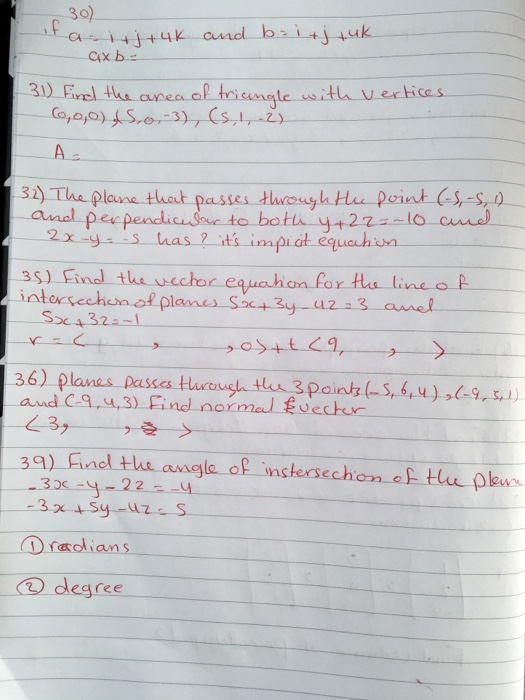 30)
if a = i + j + 4k and b = i + j + 4k
axb =
31) Find the area of triangle with vertices
(0,0,0) (5,0,-3), (5,1,-2)
A =
32) The plane that passes through the point (-5,-5,1)
and perpendicular to both y+2z=-10 and
2x-y=-5 has? it's implicit equation
35) Find the vector equation for the line of
intersection of planes 5x+3y-4z=3 and
5x+3z=-1
r = < , ,0>+t<9, , >
36) planes passes through the 3 points (-5,6,4), (-9,5,1)
and (-9,4,3) Find normal vector
<3, , >
39) Find the angle of instersection of the plane
-3x-y-2z=-4
-3x+5y-4z=5
① radians
② degree